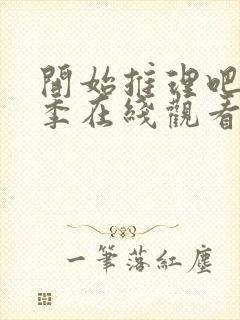 開始推理吧
季在綫觀看
一筆落紅塵